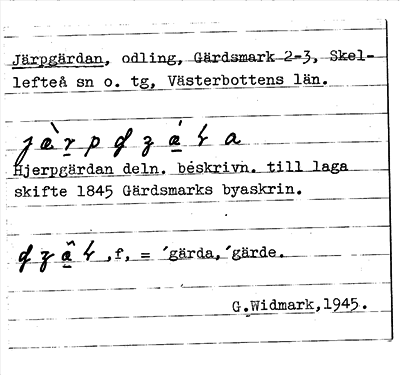 Järpgärdan, odling, Gärdsmark 2-3, Skel-
lefteå sn o. tg, Västerbottens län.
Hjerpgärdan deln. beskrivn. till laga
skifte 1845 Gärdsmarks byaskrin.
,f, = ´gärda,´gärde.
G.Widmark,1945.